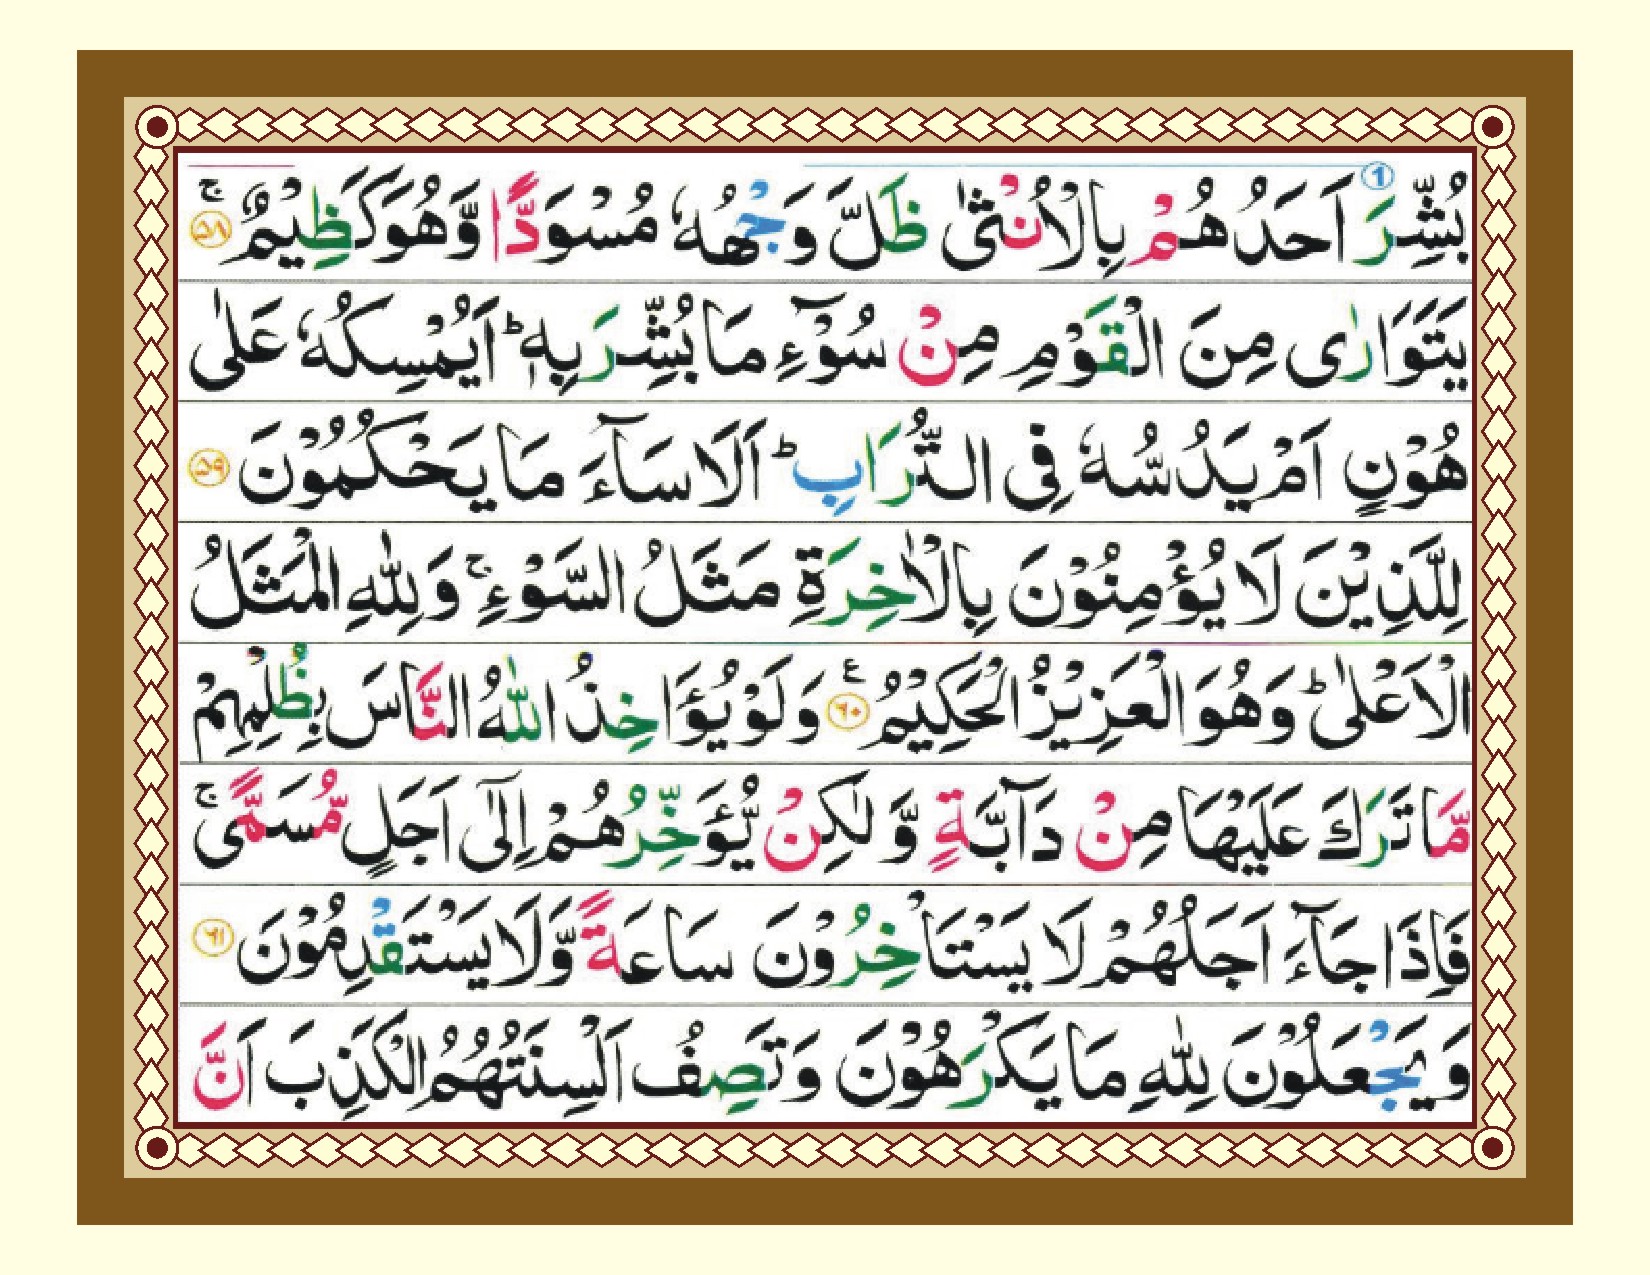 ①
بُشِّرَ اَحَدُهُمْ بِالْاُنْثٰى ظَلَّ وَجْهُهٗ مُسْوَدًّا وَّهُوَ كَظِيْمٌ ۚ ﴿۵۸﴾
يَتَوَارٰى مِنَ الْقَوْمِ مِنْ سُوْٓءِ مَا بُشِّرَ بِهٖ ؕ اَيُمْسِكُهٗ عَلٰى
هُوْنٍ اَمْ يَدُسُّهٗ فِى التُّرَابِ ؕ اَلَا سَآءَ مَا يَحْكُمُوْنَ ﴿۵۹﴾
لِلَّذِيْنَ لَا يُؤْمِنُوْنَ بِالْاٰخِرَةِ مَثَلُ السَّوْءِ ۚ وَلِلّٰهِ الْمَثَلُ
الْاَعْلٰى ؕ وَهُوَ الْعَزِيْزُ الْحَكِيْمُ ﴿۶۰﴾ ع وَلَوْ يُؤَاخِذُ اللّٰهُ النَّاسَ بِظُلْمِهِمْ
مَّا تَرَكَ عَلَيْهَا مِنْ دَآبَّةٍ وَّ لٰكِنْ يُّؤَخِّرُهُمْ اِلٰٓى اَجَلٍ مُّسَمًّى ۚ
فَاِذَا جَآءَ اَجَلُهُمْ لَا يَسْتَاْخِرُوْنَ سَاعَةً وَّلَا يَسْتَقْدِمُوْنَ ﴿۶۱﴾
وَ يَجْعَلُوْنَ لِلّٰهِ مَا يَكْرَهُوْنَ وَتَصِفُ اَلْسِنَتُهُمُ الْكَذِبَ اَنَّ